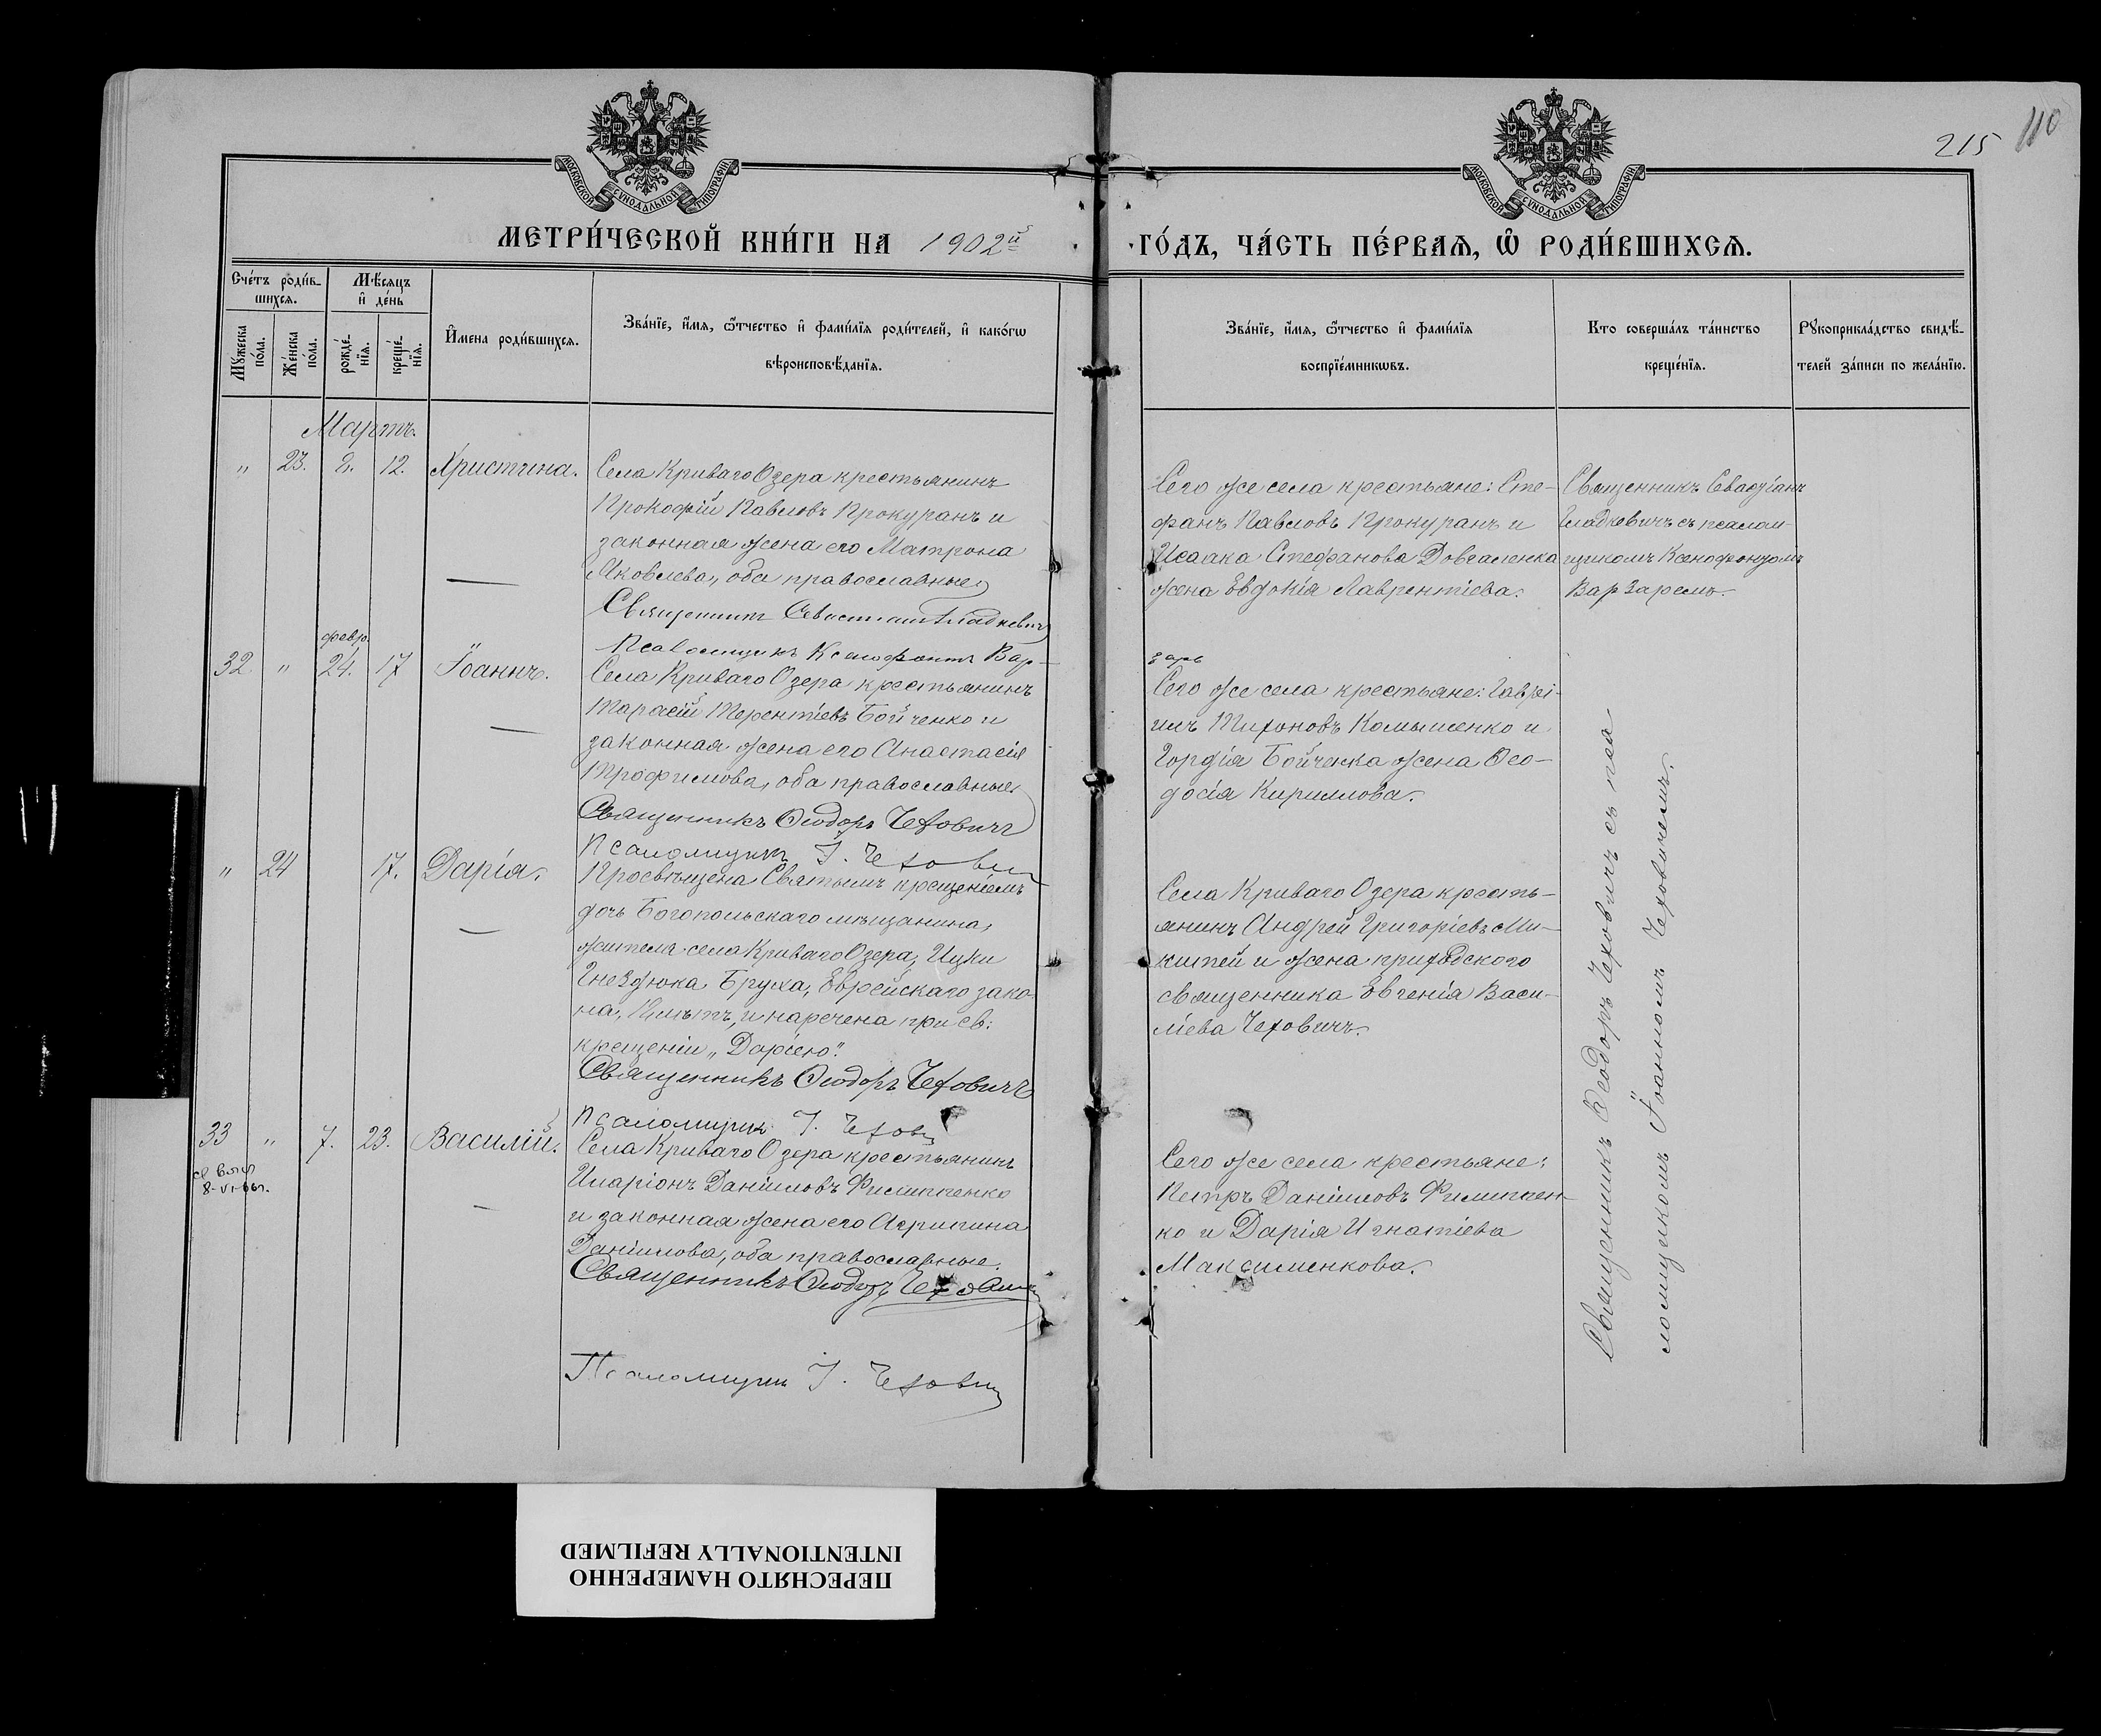 215 110
МОСКОВСКОЙ СѴНОДАЛЬНОЙ ТИПОГРАФІИ
МОСКОВСКОЙ СѴНОДАЛЬНОЙ ТИПОГРАФІИ
МЕТРИ́ЧЕСКОЙ КНИ́ГИ НА 1902й
ГО́ДЪ, ЧА́СТЬ ПЕ́РВАѦ, Ѡ҆ РОДИ́ВШИХСѦ.
Сче́тъ роди́в-
шихсѧ.
Мꙋ́жеска по́ла.
Же́нска по́ла.
Мѣ́сѧцъ
и҆ де́нь
рожде́-
нїѧ.
креще́-
нїѧ.
И҆мена роди́вшихсѧ.
Зва́нїе, и҆́мѧ, ѻ҆́тчество и҆ фами́лїѧ роди́телей, и҆ како́гѡ
вѣроисповѣ́данїѧ.
Зва́нїе, и҆́мѧ, ѻ҆́тчество и҆ фами́лїѧ
воспрїе́мникѡвъ.
Кто соверша́лъ та́инство
креще́нїѧ.
Рꙋкоприкла́дство свидѣ́-
телей за́писи по жела́нїю.
Мартъ.
" 23. 2. 12. Христина.
Села Криваго Озера крестьянинъ
Прокофій Павловъ Прокуранъ и
законная жена его Матрона
Яковлева, оба православные
Священникъ Гладкевич
Псаломщикъ Ксенофонтъ Вар-
заръ
Сего же села крестьяне: Сте-
фанъ Павловъ Прокуранъ и
Исаака Стефанова Довгаленка
жена Евдокія Лаврентіева.
Священникъ
Гладкевичъ съ псалом-
щикомъ Ксенофонтомъ
Варзаремъ.
февр.
32 " 24. 17 Іоаннъ.
Села Криваго Озера крестьянинъ
Тарасій Терентіевъ Бойченко и
законная жена его Анастасія
Трофимова, оба православные.
Священникъ Ѳеодоръ Чеховичъ
Псаломщикъ І. Чехович
Сего же села крестьяне: Гаврі-
илъ Тихоновъ Комышенко и
Гордія Бойченка жена Ѳео-
досія Кириллова.
" 24 17. Дарія.
Просвѣщена Святымъ крещеніемъ
дочь Богопольскаго мѣщанина,
жителя села Криваго Озера, Ицки
Бруха, Еврейскаго зако-
на, и наречена при св.
крещеніи „Даріею".
Священникъ Ѳеодоръ Чеховичъ
Псаломщик І. Чехович
Села Криваго Озера кресть-
янинъ Андрей Григоріевъ Ми-
китей и жена приходского
священника Евгенія Васи-
ліева Чеховичъ.
33 " 7. 23. Василій.
8-VI-66г.
Села Криваго Озера крестьянинъ
Иларіонъ Даніиловъ Филипченко
и законная жена его Агрипина
Даніилова, оба православные.
Священникъ Ѳеодоръ Чехович
Псаломщик І. Чехович
Сего же села крестьяне:
Петръ Даніиловъ Филипчен-
ко и Дарія Игнатіева
Максименкова.
Священникъ Ѳеодоръ Чеховичъ съ пса
ломщикомъ Іоанномъ Чеховичемъ.
ПЕРЕСНЯТО НАМЕРЕННО
INTENTIONALLY REFILMED